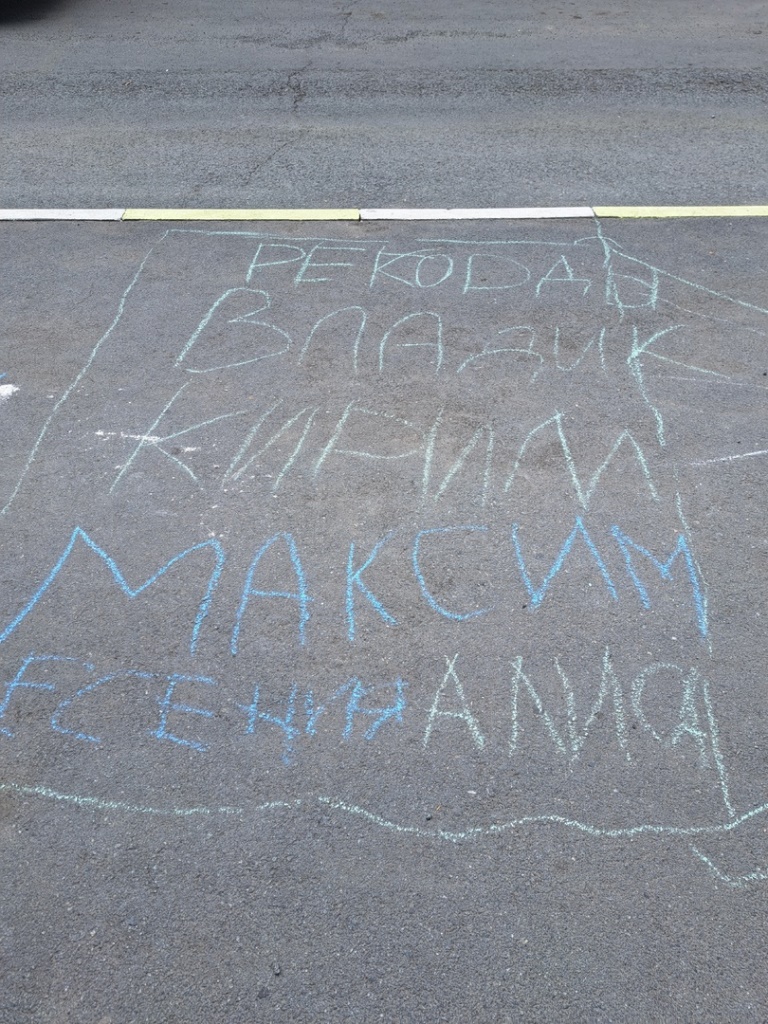 РЕКОДЫ
ВЛАДИК
КИРИЛ
МАКСИМ
ЕСЕНИН АЛИСА